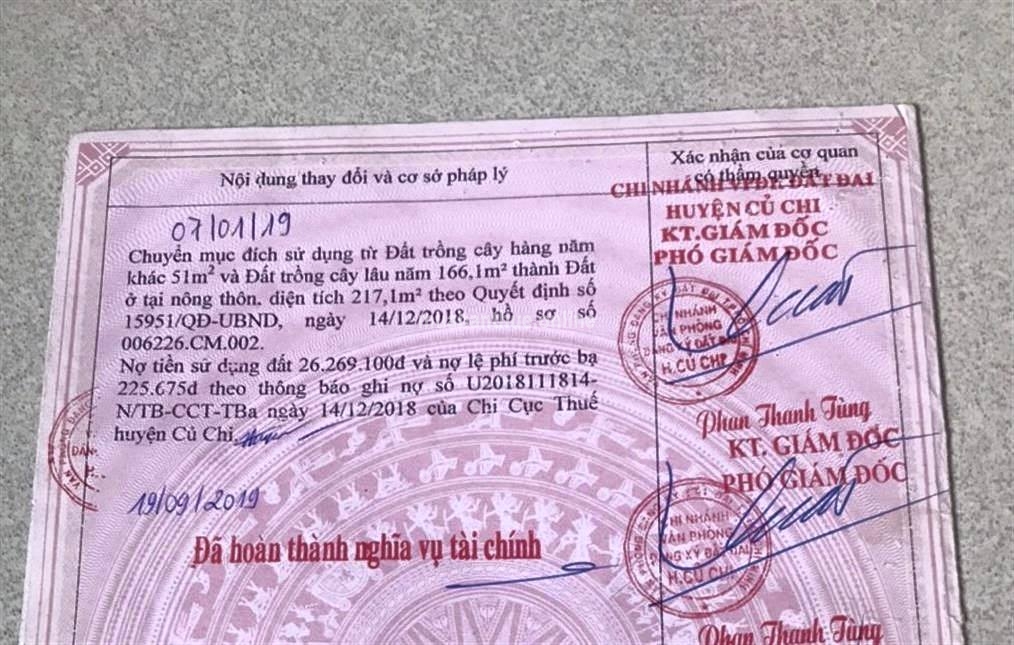 Nội dung thay đổi và cơ sở pháp lý
Xác nhận của cơ quan
có thẩm quyền
CHI NHÁNH VPĐK ĐẤT ĐAI
HUYỆN CỦ CHI
KT.GIÁM ĐỐC
PHÓ GIÁM ĐỐC
07/01/19
Chuyển mục đích sử dụng từ Đất trồng cây hàng năm
khác 51m² và Đất trồng cây lâu năm 166,1m² thành Đất
ở tại nông thôn. diện tích 217,1m² theo Quyết định số
15951/QĐ-UBND, ngày 14/12/2018, hồ sơ số
006226.CM.002.
Nợ tiền sử dụng đất 26.269.100đ và nợ lệ phí trước bạ
225.675đ theo thông báo ghi nợ số U2018111814-
N/TB-CCT-TBa ngày 14/12/2018 của Chi Cục Thuế
huyện Củ Chi
CHI NHÁNH
VĂN PHÒNG
ĐĂNG KÝ ĐẤT ĐAI
H.CỦ CHI
Phan Thanh Tùng
KT. GIÁM ĐỐC
PHÓ GIÁM ĐỐC
19/09/2019
Đã hoàn thành nghĩa vụ tài chính
CHI NHÁNH
VĂN PHÒNG
ĐĂNG KÝ ĐẤT ĐAI
H.CỦ CHI
Phan Thanh Tùng